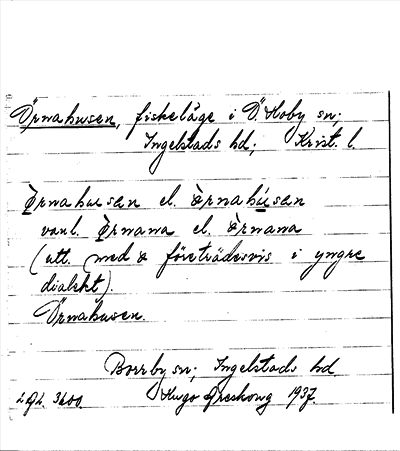 Örnahusen, fiskeläge i Ö. Hoby sn;
Ingelstads hd; Krist. l.
Òrnahusen el. òrnahúsen
vanl. Òrnana el. òrnana
(utt. med ò företrädesvis i yngre
dialekt).
Örnahusen.
Borrby sn; Ingelstads hd.
Hugo Areskoug 1937.